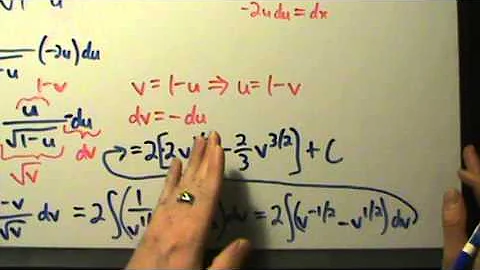 -2u du = dx
(-2u) du
1-v
u
√1-u
- du
dv
√v
v = 1-u ⇒ u = 1-v
dv = - du
= 2[2v - 2/3 v^3/2] + C
-v/√v dv = 2∫(1/v dv = 2∫(v^-1/2 - v^1/2) dv